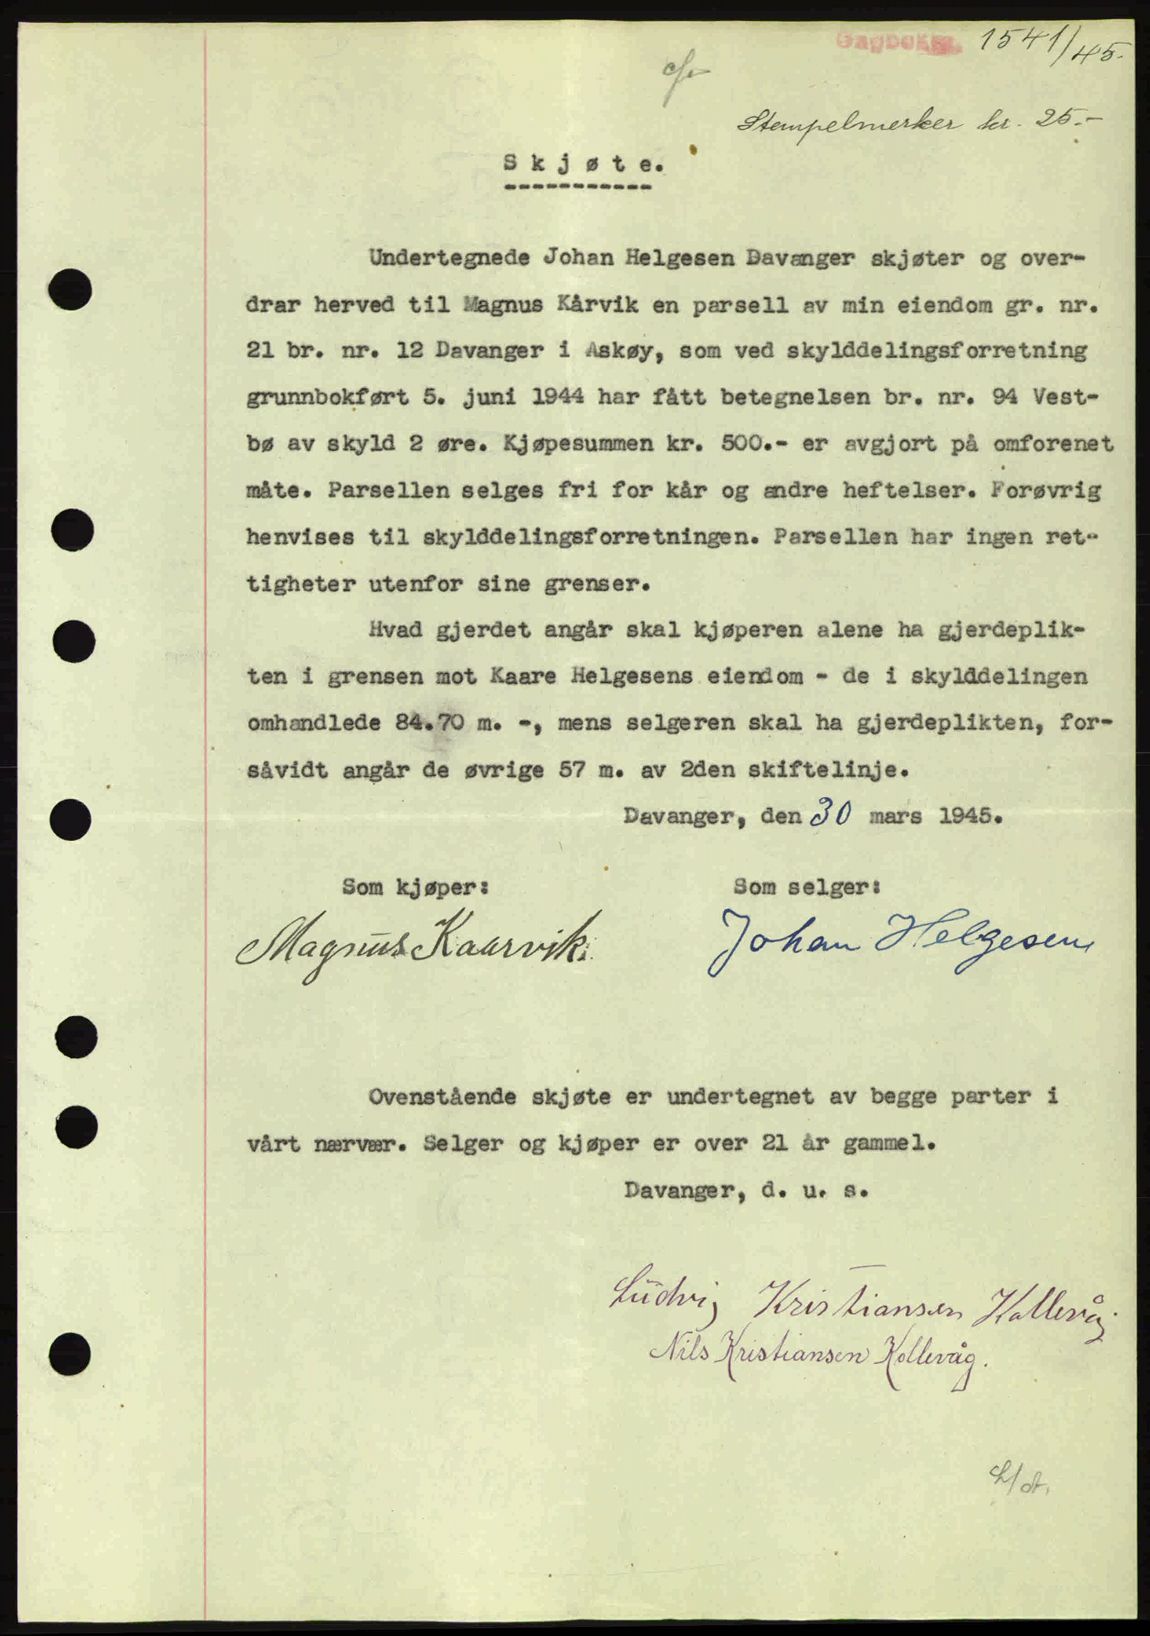 Dagboknr. 1541/45.
Stempelmerker kr. 25.-
Skjøte.
Undertegnede Johan Helgesen Davanger skjøter og over-
drar herved til Magnus Kårvik en parsell av min eiendom gr. nr.
21 br. nr. 12 Davanger i Askøy, som ved skylddelingsforretning
grunnbokført 5. juni 1944 har fått betegnelsen br. nr. 94 Vest-
bø av skyld 2 øre. Kjøpesummen kr. 500.- er avgjort på omforenet
måte. Parsellen selges fri for kår og andre heftelser. Forøvrig
henvises til skylddelingsforretningen. Parsellen har ingen ret-
tigheter utenfor sine grenser.
Hvad gjerdet angår skal kjøperen alene ha gjerdeplik-
ten i grensen mot Kaare Helgesens eiendom - de i skylddelingen
omhandlede 84.70 m. -, mens selgeren skal ha gjerdeplikten, for-
såvidt angår de øvrige 57 m. av 2den skiftelinje.
Davanger, den 30 mars 1945.
Som kjøper: Som selger:
Magnus Kaarvik Johan Helgesen
Ovenstående skjøte er undertegnet av begge parter i
vårt nærvær. Selger og kjøper er over 21 år gammel.
Davanger, d. u. s.
Ludvig Kristiansen Kollevåg
Nils Kristiansen Kollevåg.